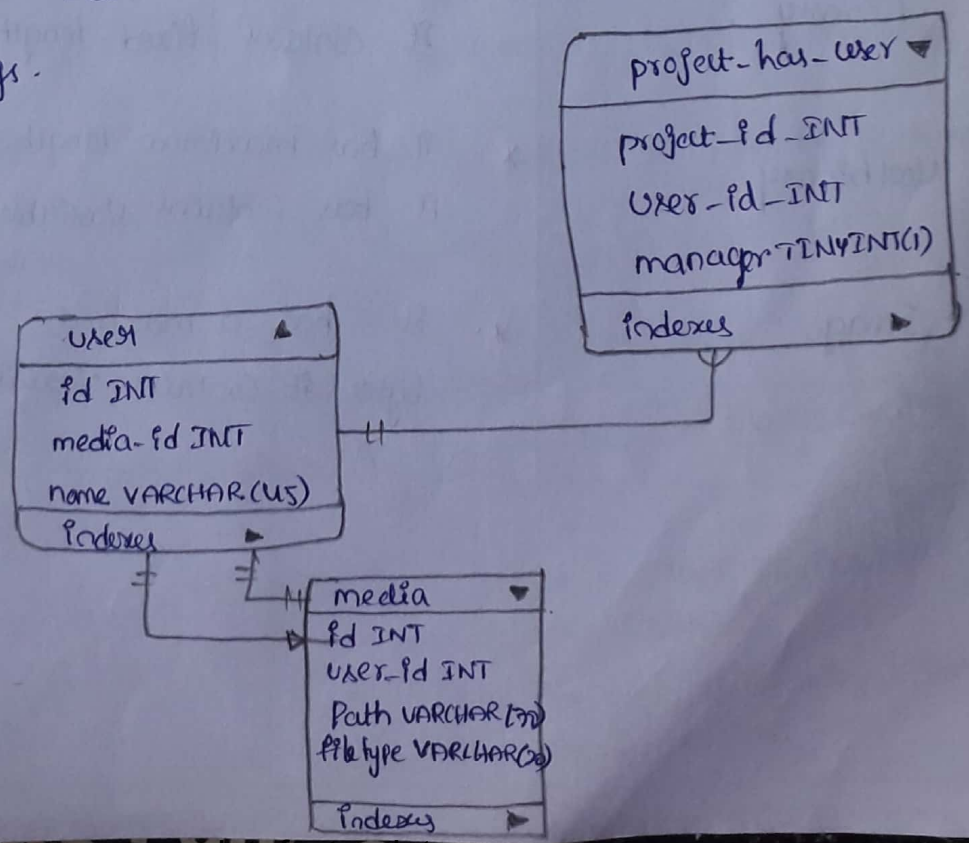 project_has_user
project_id_INT
user_id_INT
manager TINYINT(1)
indexes
user
id INT
media_id INT
name VARCHAR(45)
indexes
media
id INT
user_id INT
Path VARCHAR
filetype VARCHAR(20)
indexes